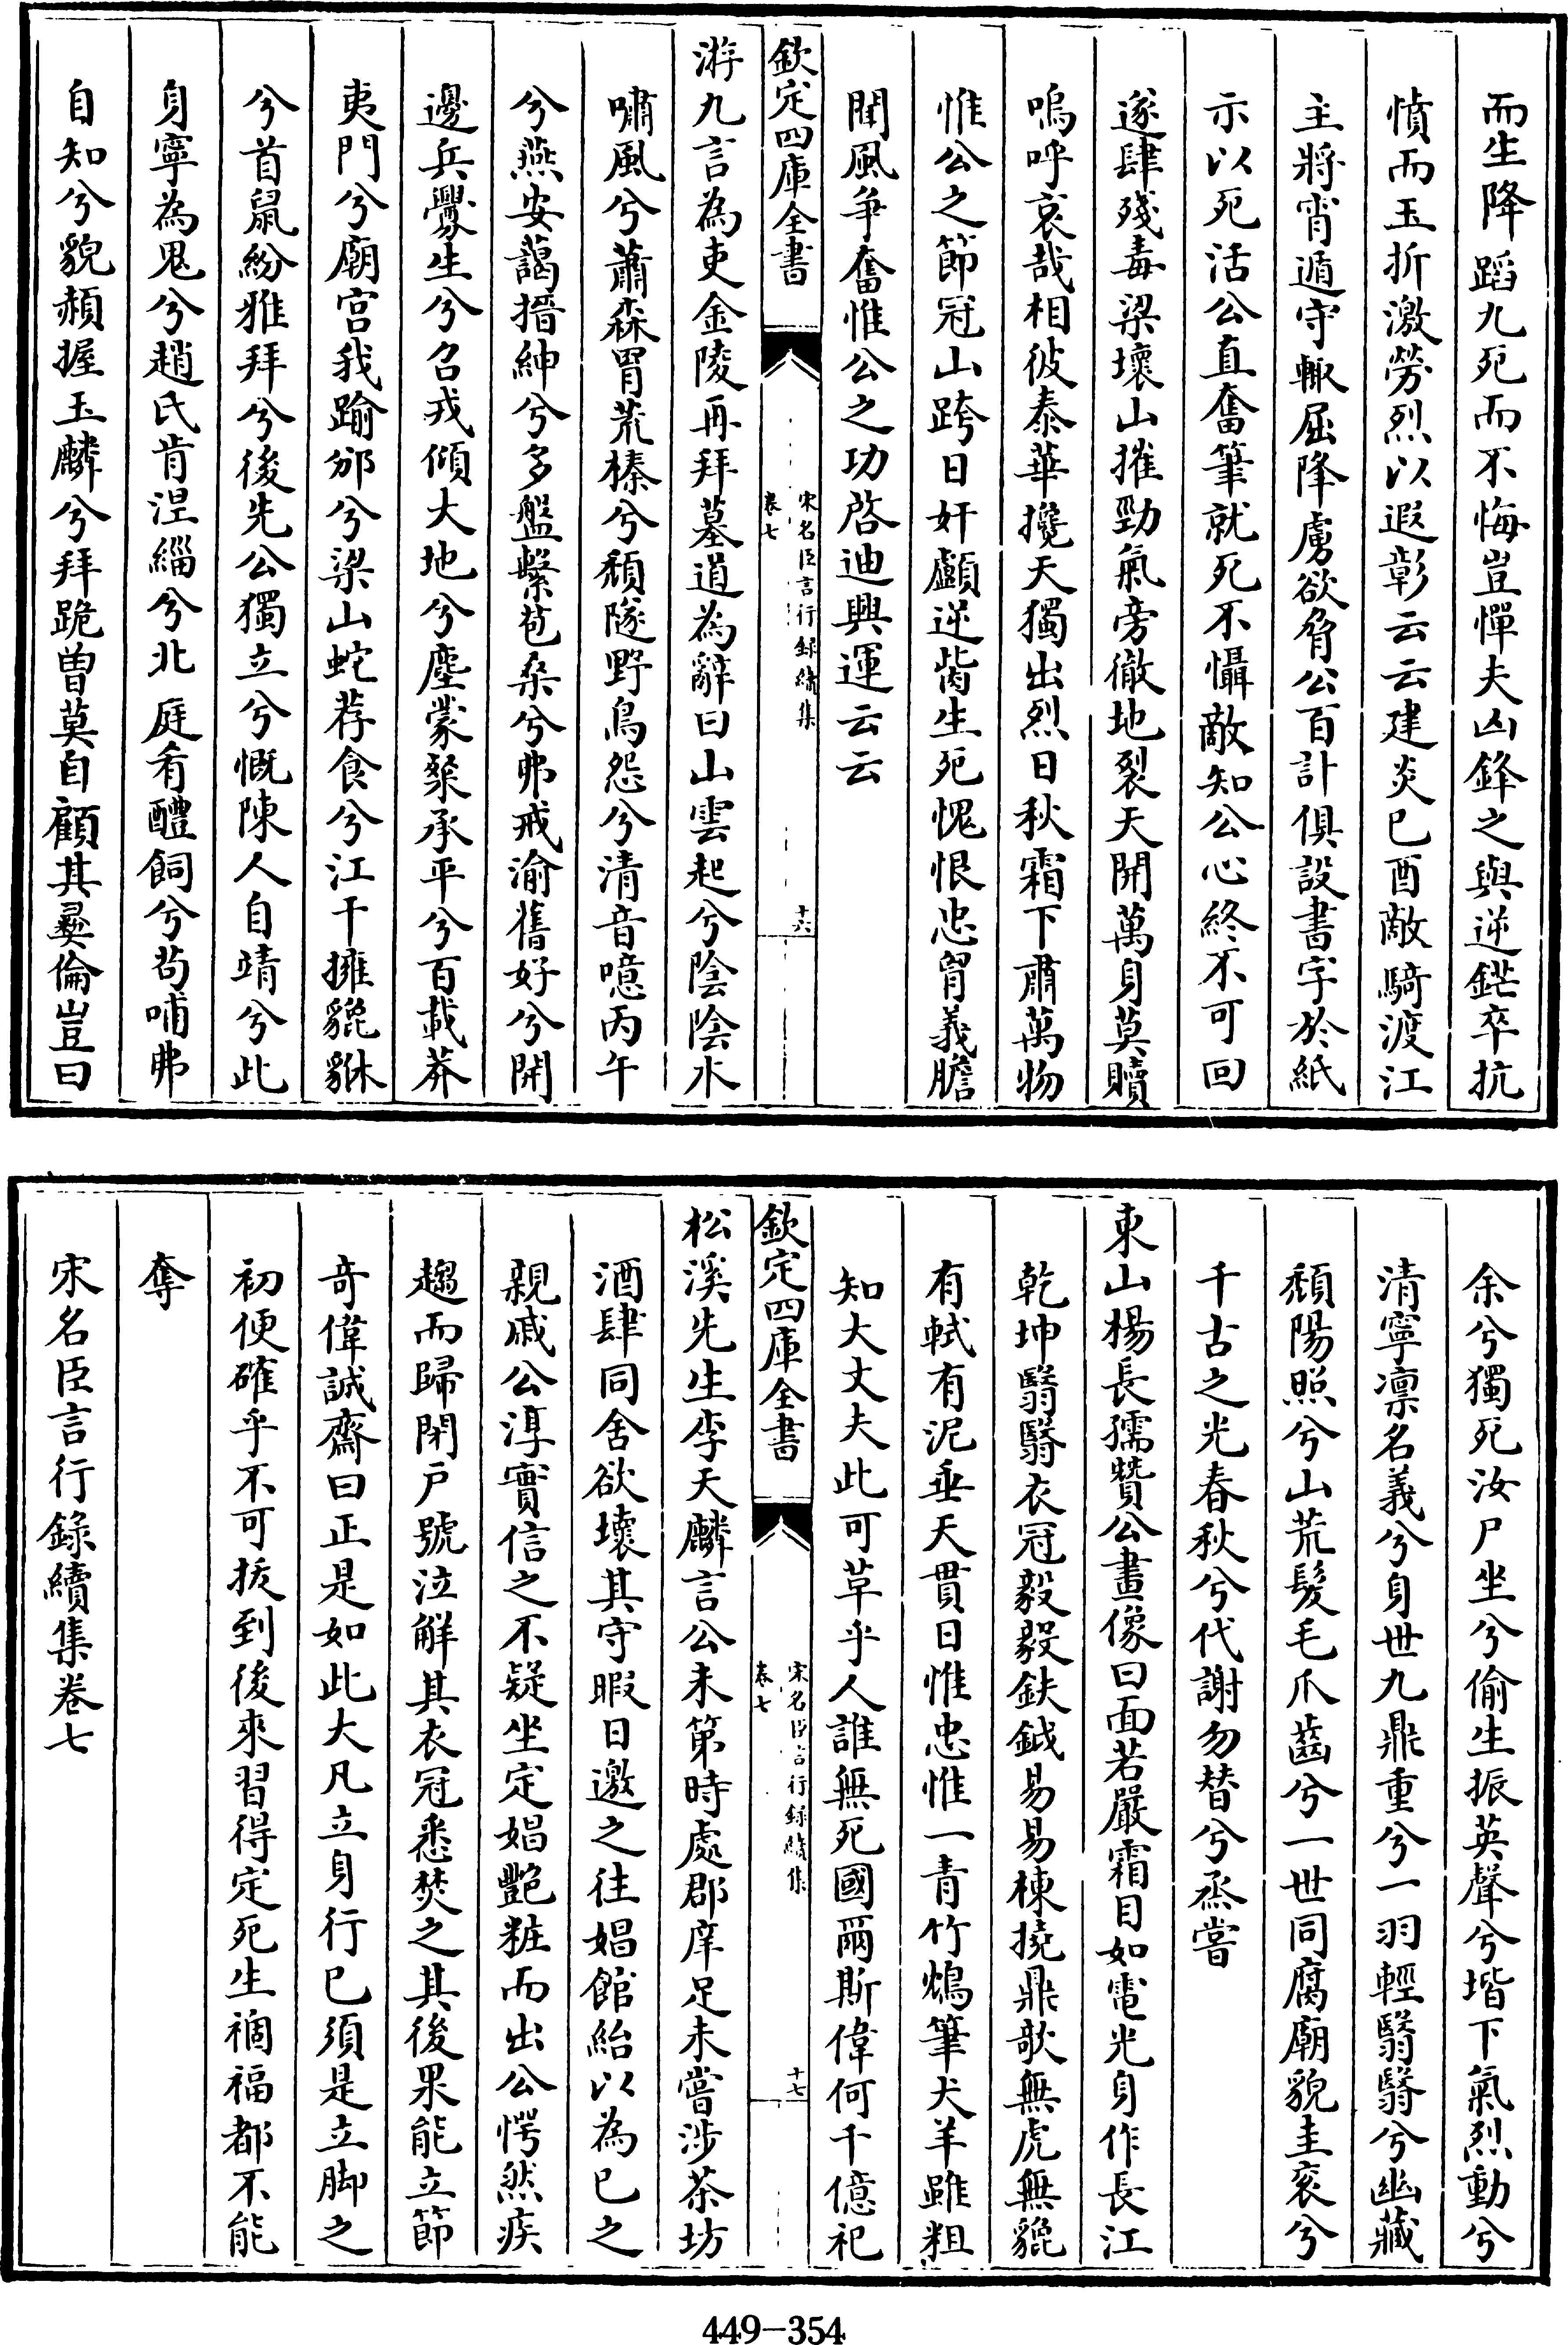 而生降蹈九死而不悔豈憚夫凶鋒之與逆鋩卒抗
憤而玉折激勞烈以遐彰云云建炎已酉敵騎渡江
主將宵遁守輙屈降虜欲脅公百計俱設書字於紙
示以死活公直奮筆就死不懾敵知公心終不可回
遂肆殘毒梁壞山摧勁氣旁徹地裂天開萬身莫贖
嗚呼哀哉相彼泰華攙天獨出烈日秋霜下肅萬物
惟公之節冠山跨日奸顱逆齒生死愧恨忠胷義膽
聞風爭奮惟公之功啓迪興運云云
欽定四庫全書
宋名臣言行録續集
卷七
十六
游九言為吏金陵再拜墓道為辭曰山雲起兮陰陰水
嘯風兮蕭森罥荒榛兮頽隧野鳥怨兮清音噫丙午
兮燕安藹搢紳兮多盤繫苞桑兮弗戒渝舊好兮開
邊兵釁生兮召戎傾大地兮塵蒙聚承平兮百載莽
夷門兮廟宫我踰邠兮梁山蛇荐食兮江干擁貔貅
兮首鼠紛雅拜兮後先公獨立兮慨陳人自靖兮此
身寧為鬼兮趙氏肯涅緇兮北庭肴醴飼兮苟哺弗
自知兮貌頳握玉麟兮拜跪曽莫自顧其彛倫豈曰
余兮獨死汝尸坐兮偷生振英聲兮堦下氣烈動兮
清寧凛名義兮身世九鼎重兮一羽輕翳翳兮幽藏
頽陽照兮山荒髮毛爪齒兮一世同腐廟貌圭衮兮
千古之光春秋兮代謝勿替兮烝嘗
東山楊長孺贊公畫像曰面若嚴霜目如電光身作長江
乾坤翳翳衣冠毅毅鈇鉞易易棟撓鼎欹無虎無貔
有軾有泥垂天貫日惟忠惟一青竹鴆筆犬羊雖粗
知大丈夫此可草乎人誰無死國爾斯偉何千億祀
欽定四庫全書
宋名臣言行録續集
卷七
十七
松溪先生李天麟言公未第時處郡庠足未嘗涉茶坊
酒肆同舍欲壞其守暇日邀之往娼館紿以為已之
親戚公淳實信之不疑坐定娼艷粧而出公愕然疾
趨而歸閉戸號泣解其衣冠悉焚之其後果能立節
奇偉誠齋曰正是如此大凡立身行已須是立脚之
初便確乎不可拔到後來習得定死生禍福都不能
奪
宋名臣言行錄續集卷七
449-354